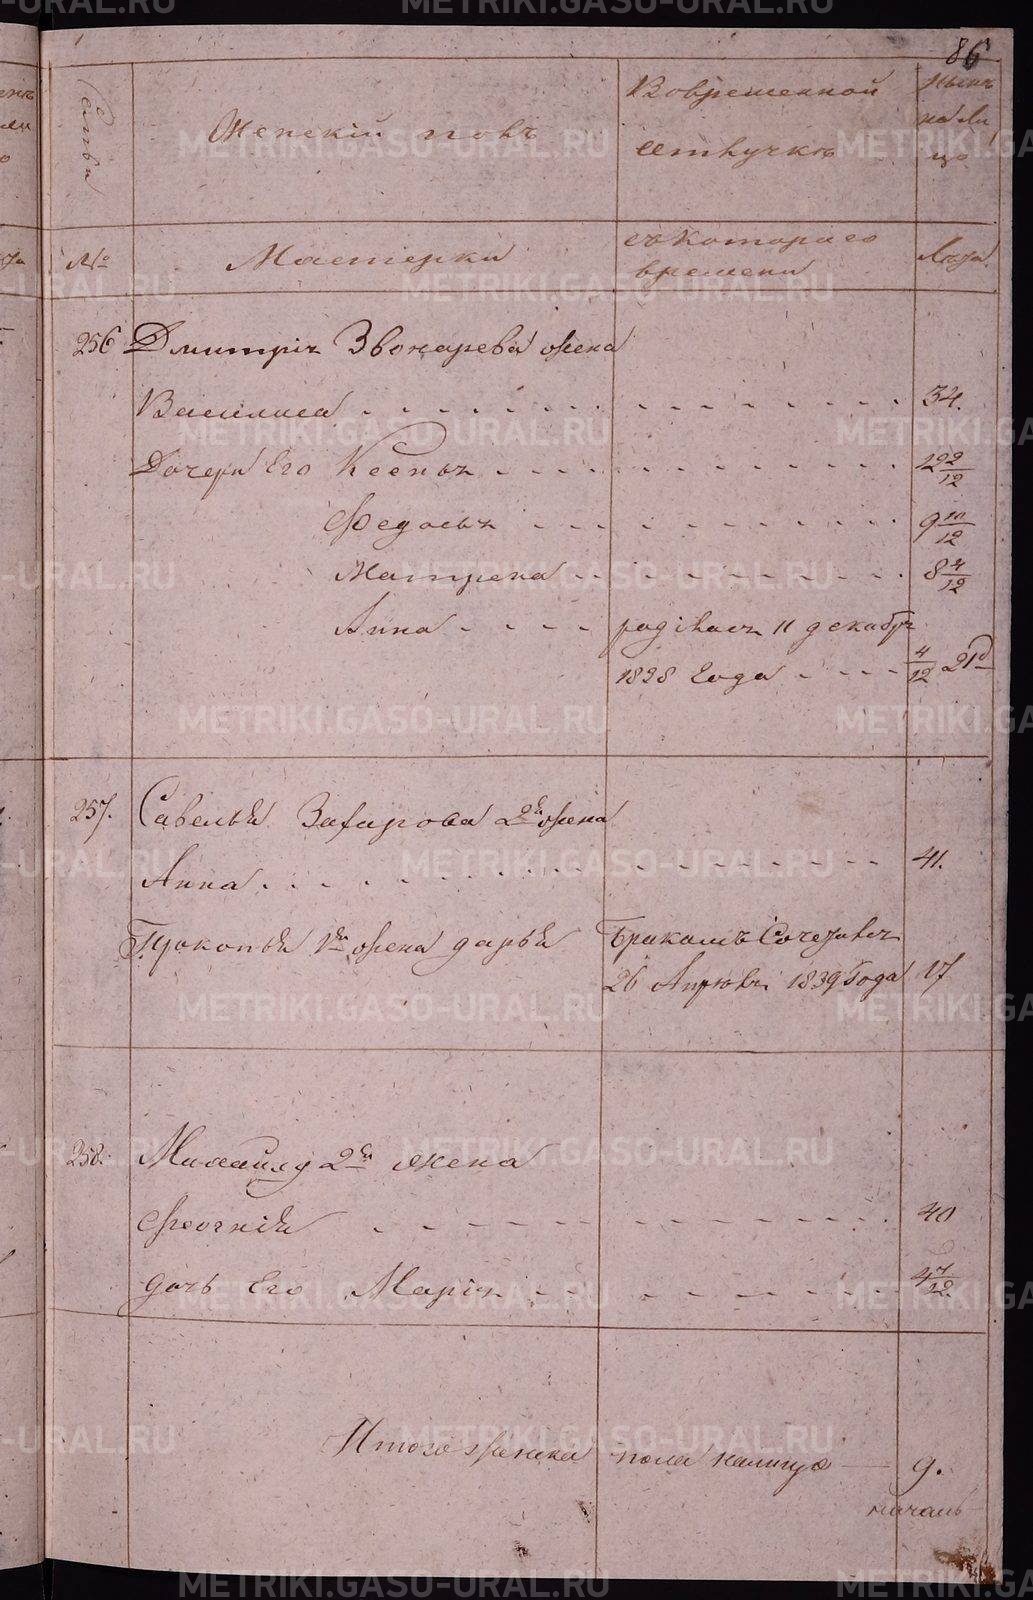 86
Семьи
Женскій полъ
Вовременной
отлучкѣ
Нынѣ
на ли
цо
№
Мастерки
съ котораго
времени
Лѣта.
256 Дмитрія Звонарева жена
Василиса 34.
Дочери Его Ксенья 12 2/12
Федосья 9 10/12
Матрена 8 4/12
Анна родилась 11 декабря
1828 года 4/12 21д
257. Савелья Захарова 2я жена
Анна 41.
Прокопья 1я жена дарья Бракомъ Сочеталась
26 Апреля 1839 Года 17
258. Михайлу 2я жена
40
дочь Его Марія 4 7/12
Итого женска пола налицо 9.
METRIKI.GASO-URAL.RU